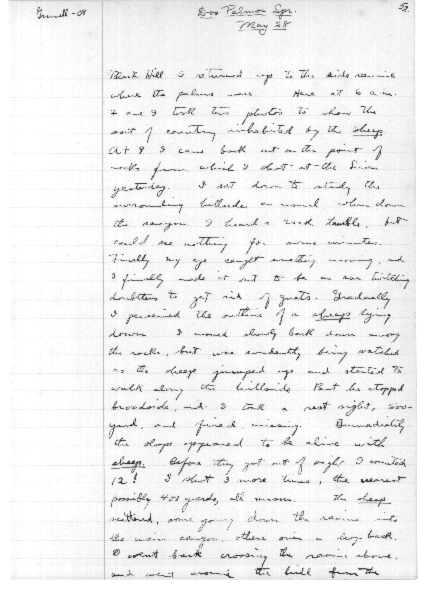 Grinnell - 08
Dos Palmos Spr.
May 28
Black Hill I returned up to the side ravine
where the palms were. Here at 6 a.m.
I took two photos to show the
sort of country inhabited by the sheep.
At 9 I came back out on the point of
rocks from which I shot at the
yesterday. I sat down to study the
surrounding hillside as usual when down
the canyon I heard a rock tumble, but
could see nothing for some minutes.
Finally my eye caught something moving, and
I finally made it out to be an ear twitching
doubtless to get rid of gnats. Gradually
I perceived the outline of a sheep lying
down. I moved slowly back down among
the rocks, but was evidently being watched
as the sheep jumped up and started to
walk along the hillside. But he stopped
broadside, and I took a rest sight, 300
yards, and fired, missing. Immediately
the slope appeared to be alive with
sheep. Before they got out of sight I counted
12! I shot 3 more times, the nearest
possibly 400 yards, all misses. The sheep
scattered, some going down the ravine into
the main canyon, others over a hog-back.
I went back crossing the ravine above,
and went around the hill from the